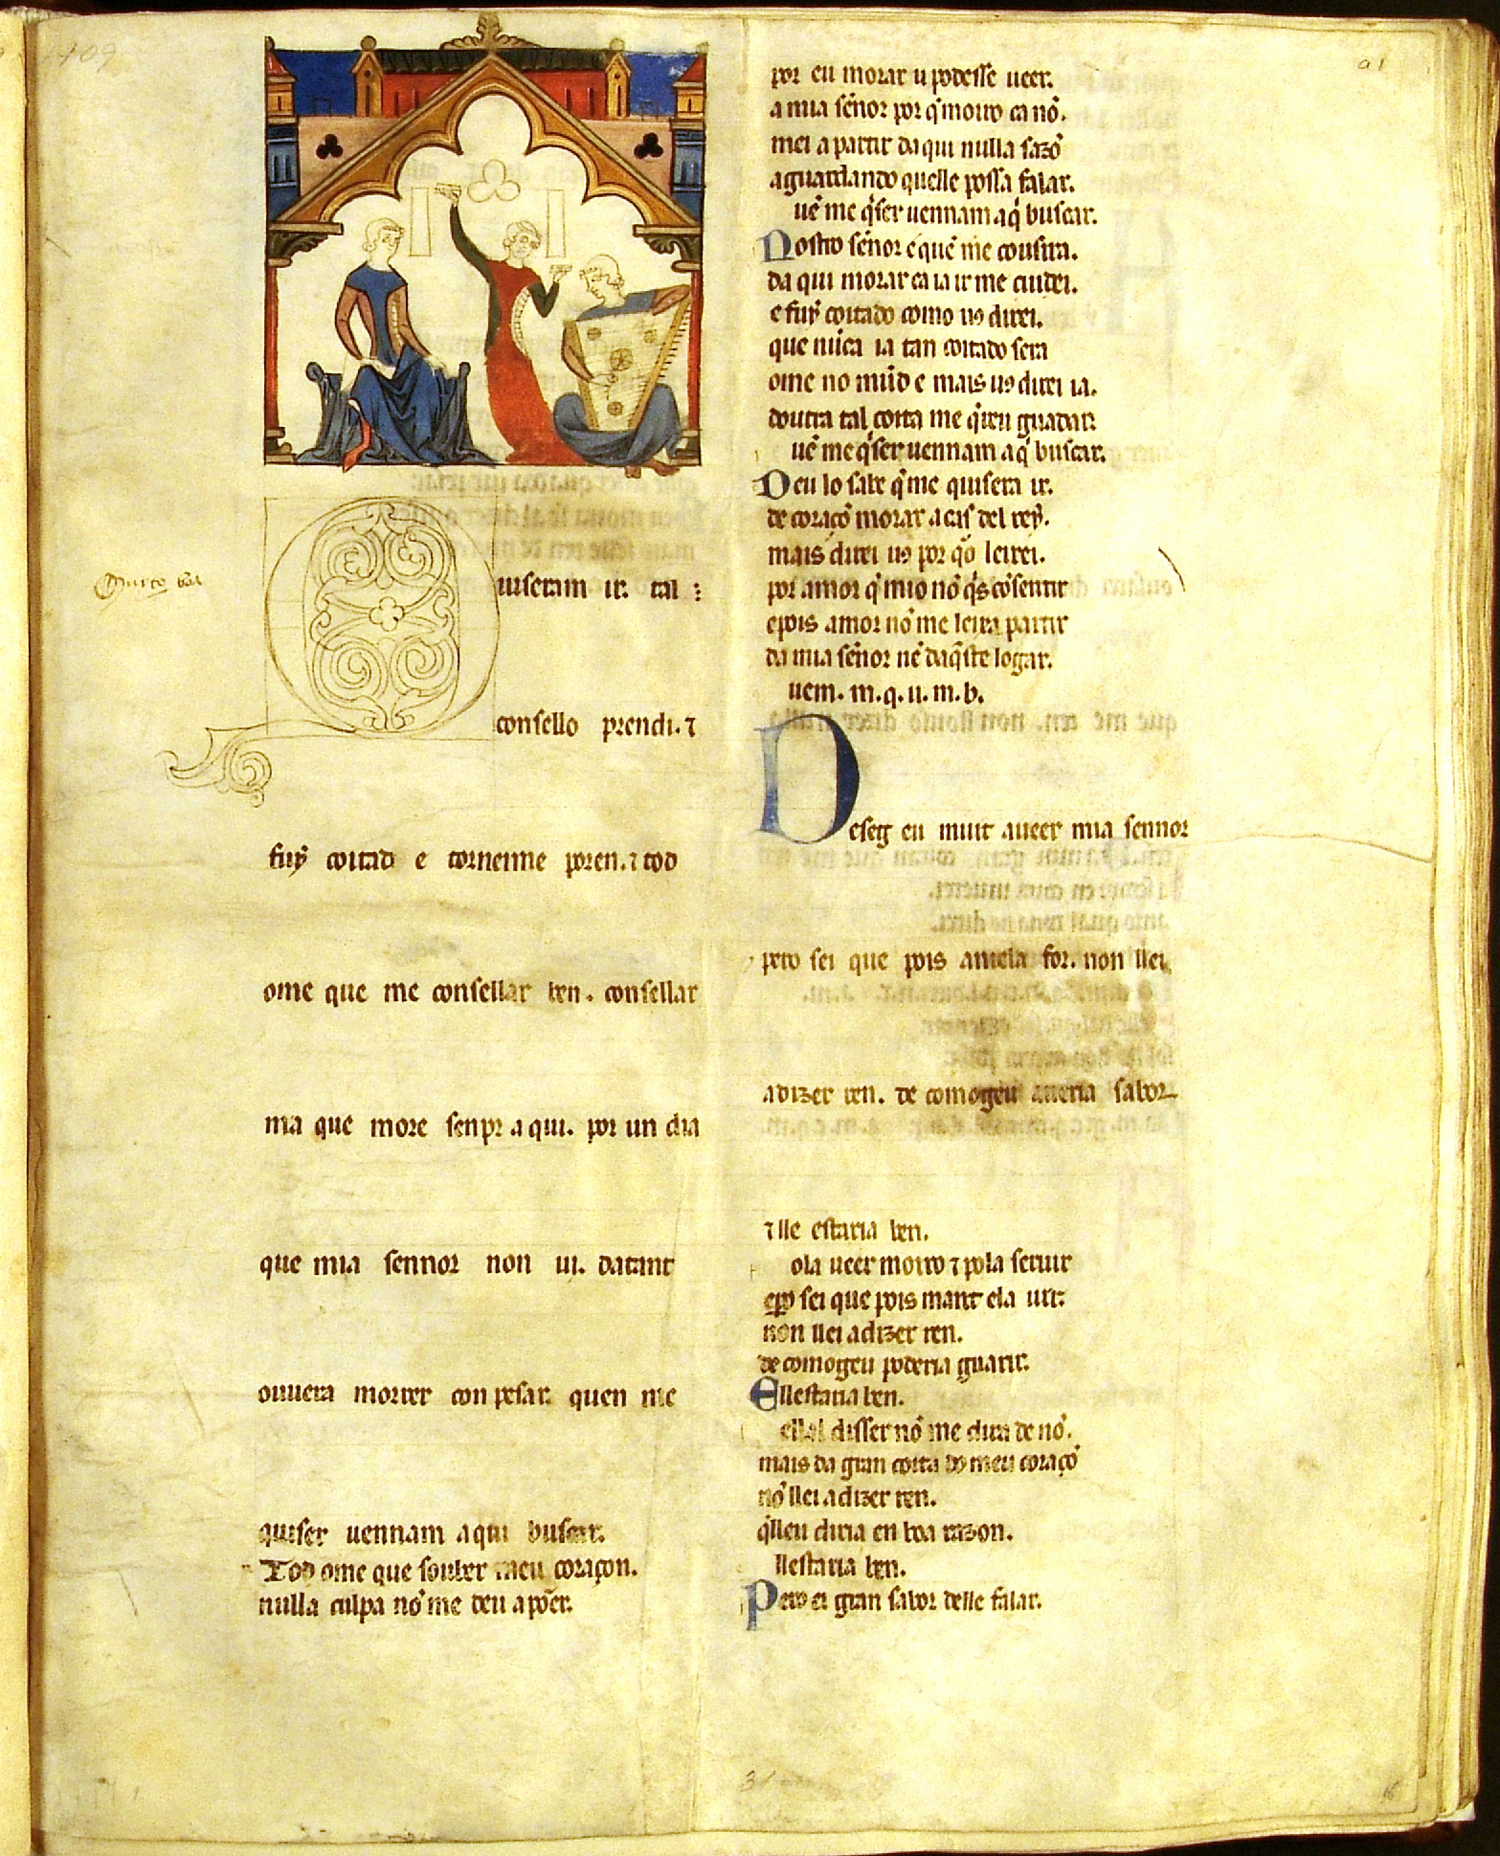 409
a1
uiseram ir. tal
consello prendi. ⁊
fuẏ coitad e torneime poren. ⁊ tod
ome que me consellar ben. consellar
ma que more senpr aqui. por un dia
que mia sennor non ui. datant
ouuera morrer con pesar. quen me
quiser uennam aqui buscar.
Tod ome que souber meu coraçon.
nulla culpa nõ me deu a põer.
por eu morar u podesse ueer.
a mia señor por q̇ moiro ca nõ.
mei a partir daqui nulla sazõ
aguardando quelle possa falar.
uẽ me q̇ser uennam aq̇ buscar.
Nostro señor e quẽ me cousira.
da qui morar ca ia ir me cuidei.
e fuẏ coitado como uꝯ direi.
que nũca ia tan coitado sera
ome no mũdo e mais uꝯ direi ia.
doutra tal coita me q̇reu guadar.
uẽ me q̇ser uennam aq̇ buscar.
Deu lo sabe q̇ me quisera ir.
de coraçõ morar a cas del reẏ.
mais direi uꝯ por qo leixei.
por amor q̇ mio nõ q̇s cõsentir
e pois amor nõ me leixa partir
da mia señor nẽ daq̃ste logar.
uem. m. q. u. m. b.
Deseg eu muit aueer mia sennor
pero sei que pois antela for. non llei
adizer ren. de comogeu aueria sabor
⁊ lle estaria ben.
ola ueer moiro ⁊ pola seruir
epo sei que pois mant ela uir.
non llei adizer ren.
de comogeu poderia guarir.
Ellestaria ben.
disser nõ me dira de nõ.
mais da gran coita do meu coraçõ
nõ llei adizer ren.
q̇lleu diria en boa razon.
llestaria ben.
Pero ei gran sabor delle falar.
31